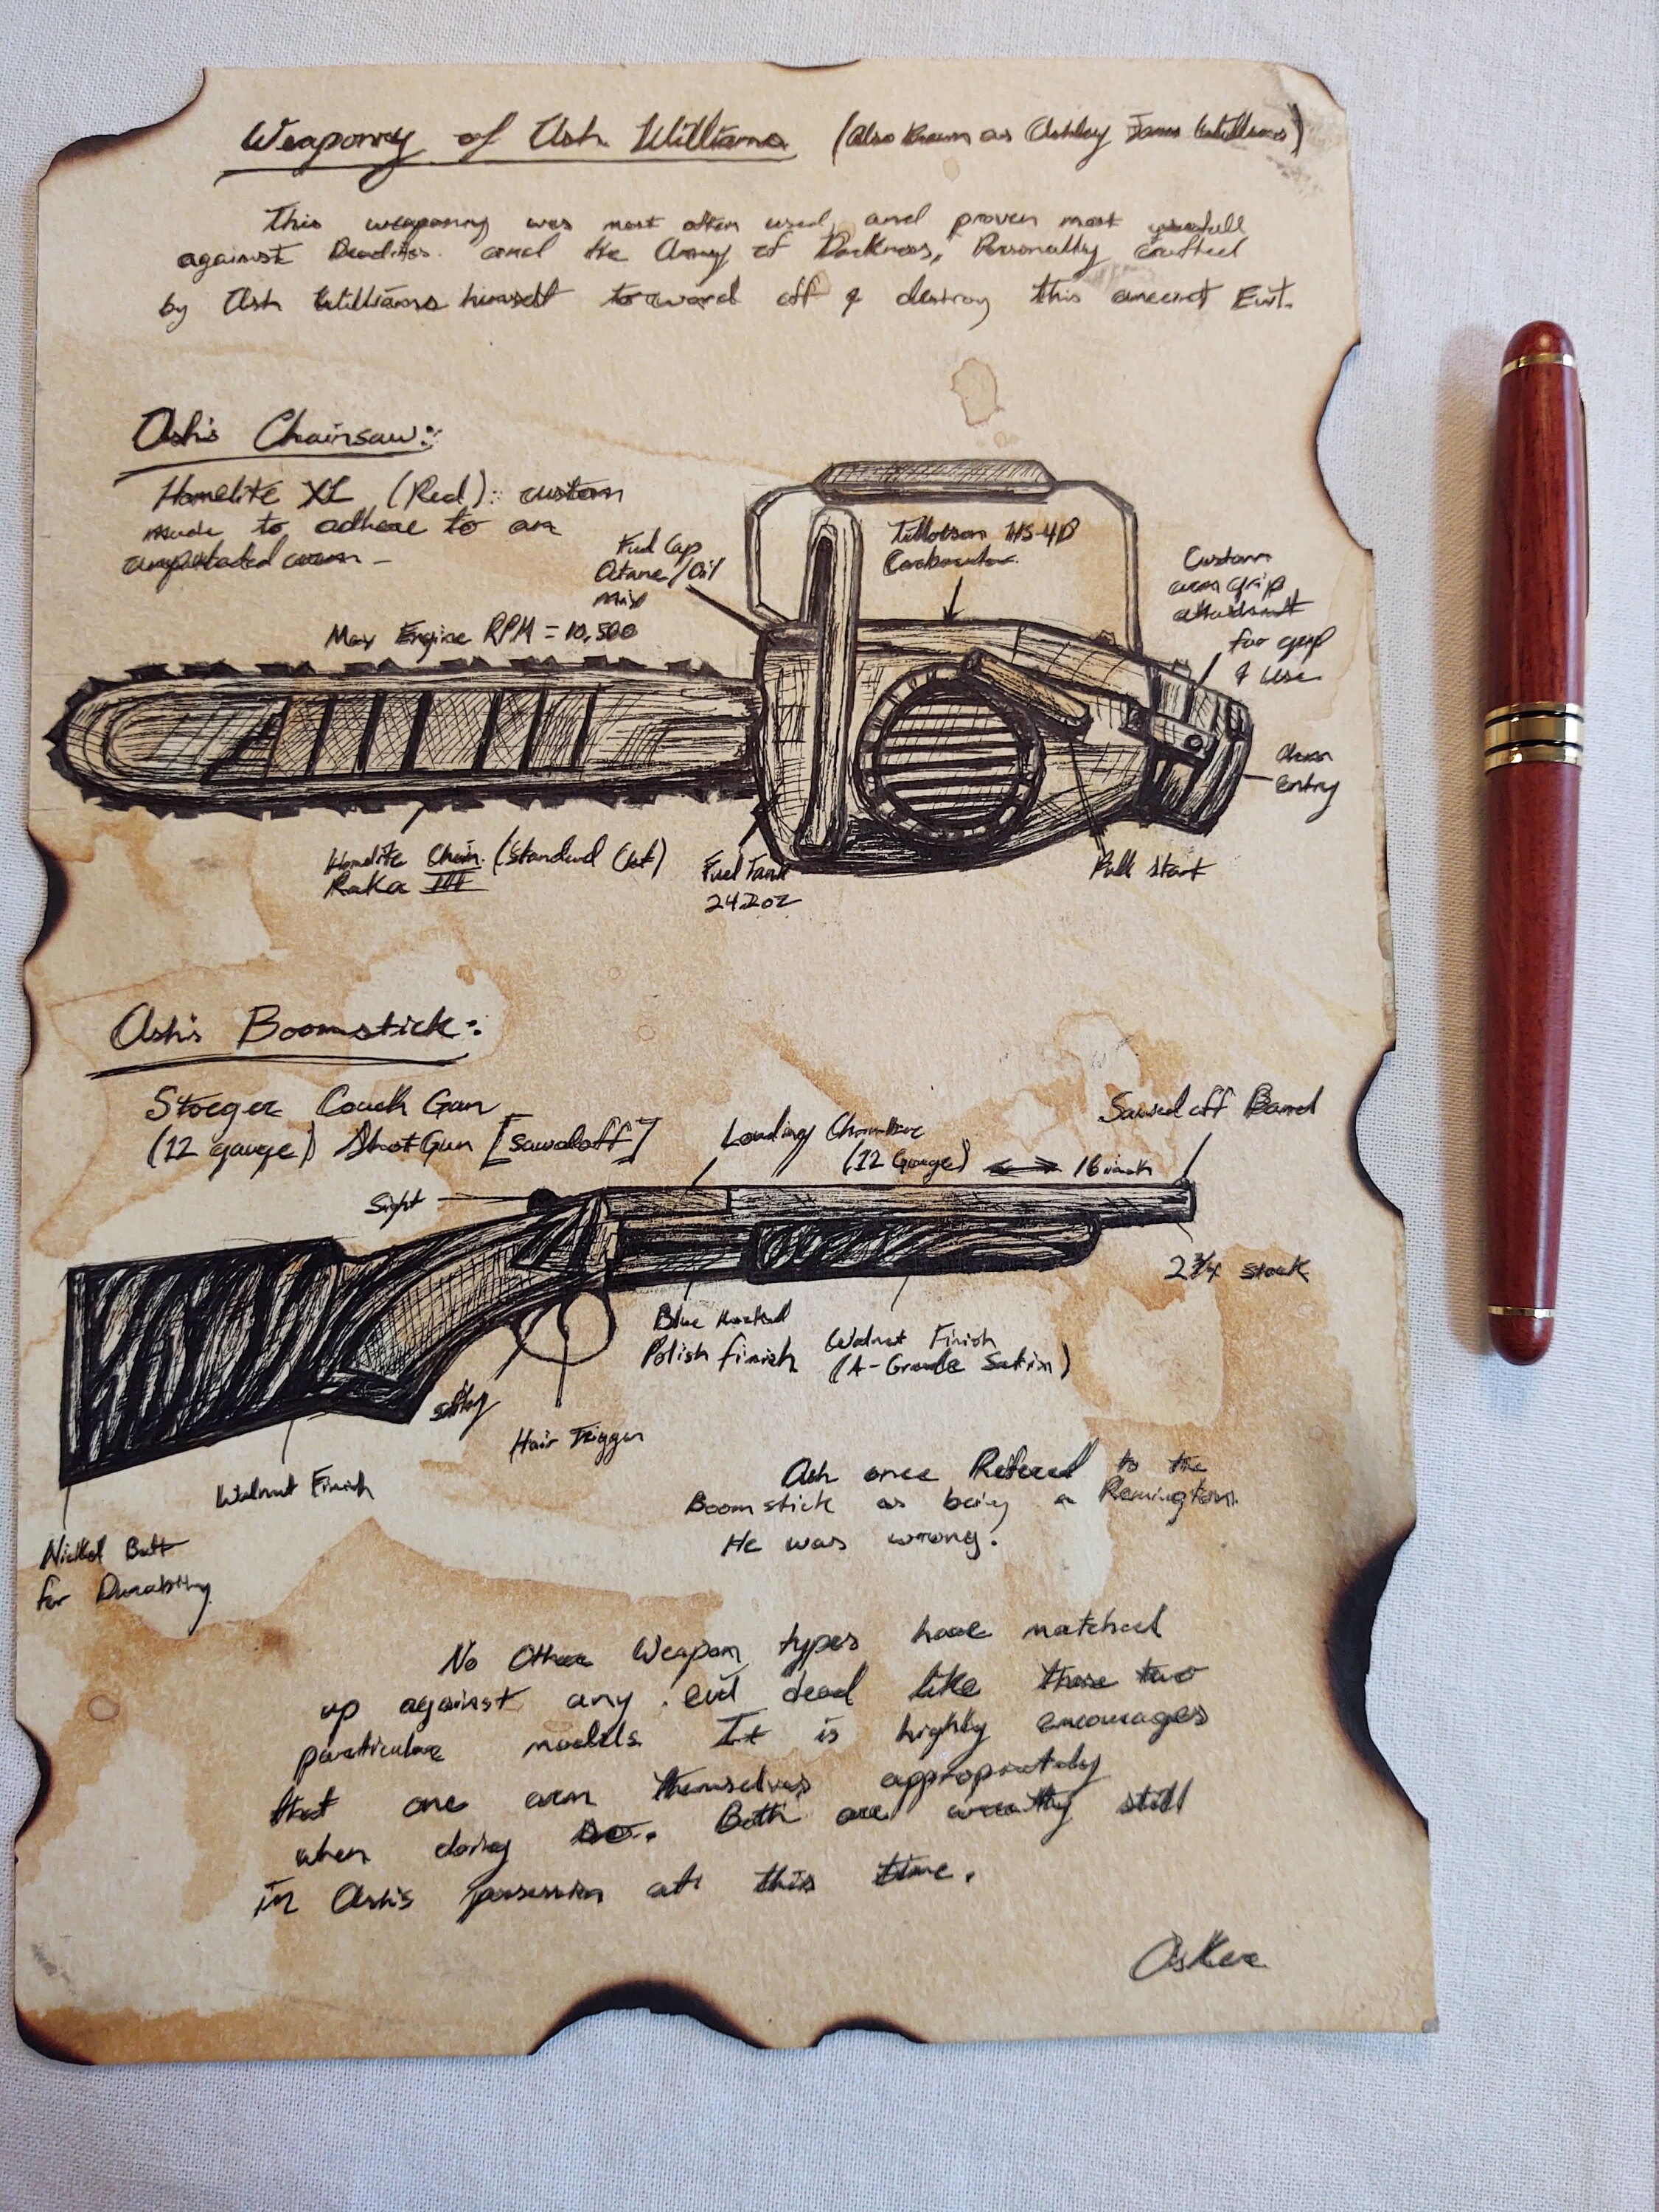 Weaponry of Ash Williams (Also Known as Ashley James Williams)
This weaponry was most often used, and proven most usefull
against Deadites. and the Army of Darkness, Personally Crafted
by Ash Williams himself to ward off & destroy this ancient Evil.
Ash's Chainsaw:
Homelite XL (Red): custom
made to adhere to an
amputated arm -
Fuel Cap
Octane/Oil
Mix
Tillotson HS-4D
Carborator
Custom
arm grip
attachment
for grip
& use
Max Engine RPM = 10,500
Arm
Entry
Homelite Chain (Standard Cut)
Raka III
Fuel Tank
24.2oz
Pull Start
Ash's Boomstick:
Stoeger Coach Gun
(12 gauge) ShotGun [Sawedoff]
Loading Chamber
(12 Gauge)
16 inch
Sawed off Barrel
Sight
2 3/4 stock
Blue
Polish finish
Walnut Finish
(A-Grade Satin)
Safety
Hair Trigger
Walnut Finish
Nickel Butt
for Durability
Ash once Refered to the
Boomstick as being a Remington.
He was wrong.
No Other Weapon types have matched
up against any evil dead like these two
particular models. It is highly encourages
that one arm themselves appropriately
when doing so. Both are still
in Ash's possession at this time.
Asker